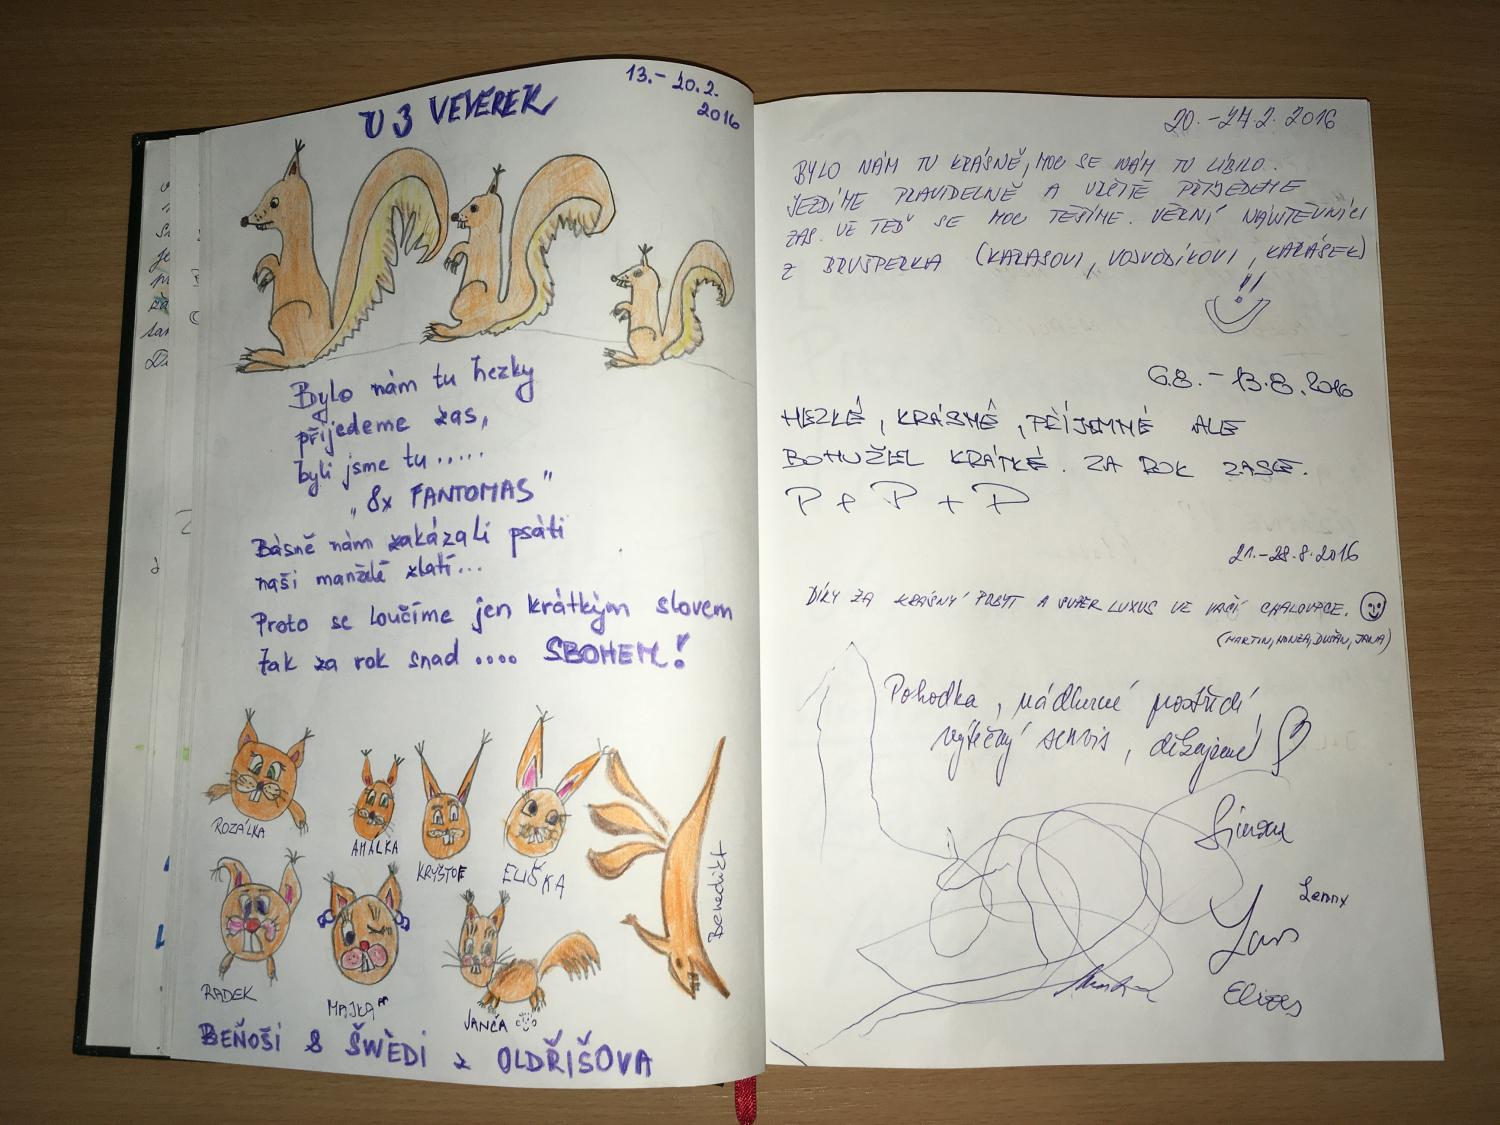 U 3 VEVEREK
13.-20.2.
2016
Bylo nám tu hezky
přijedeme zas,
byli jsme tu.....
"8x FANTOMAS"
Básně nám zakázali psáti
naši manželé zlatí...
Proto se loučíme jen krátkým slovem
tak za rok snad .... SBOHEM!
ROZÁLKA
AMÁLKA
KRYŠTOF
ELIŠKA
Benedikt
RADEK
MAJKA
JANČA
BEŇOŠI & ŠWÈDI z OLDŘIŠOVA
20.-24.2.2016
BYLO NÁM TU KRÁSNĚ, MOC SE NÁM TU LÍBILO..
JEZDÍME PRAVIDELNĚ A URČITĚ PŘIJEDEME
ZAS. UŽ TEĎ SE MOC TĚŠÍME. VĚRNÍ NÁVŠTĚVNÍCI
Z BRUŠPERKA (KARASOVI, VOJVODÍKOVI, KARÁSEK)
6.8.-13.8.2016
HEZKÉ, KRÁSNÉ, PŘÍJEMNÉ ALE
BOHUŽEL KRÁTKÉ. ZA ROK ZASE.
P + P + P
21.-28.8.2016
DÍKY ZA KRÁSNÝ POBYT A SUPER LUXUS VE VAŠÍ CHALOUPCE.
(MARTIN, DUŠAN, JANA)
Pohodka, nádherné prostředí,
výtečný servis, děkujeme
Lenny
Lars